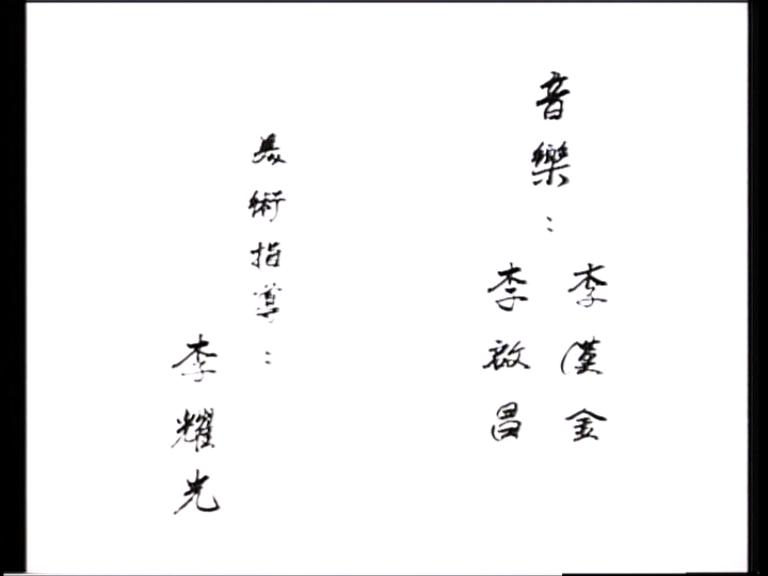 音樂：
李漢金
李啟昌
美術指導：
李耀光